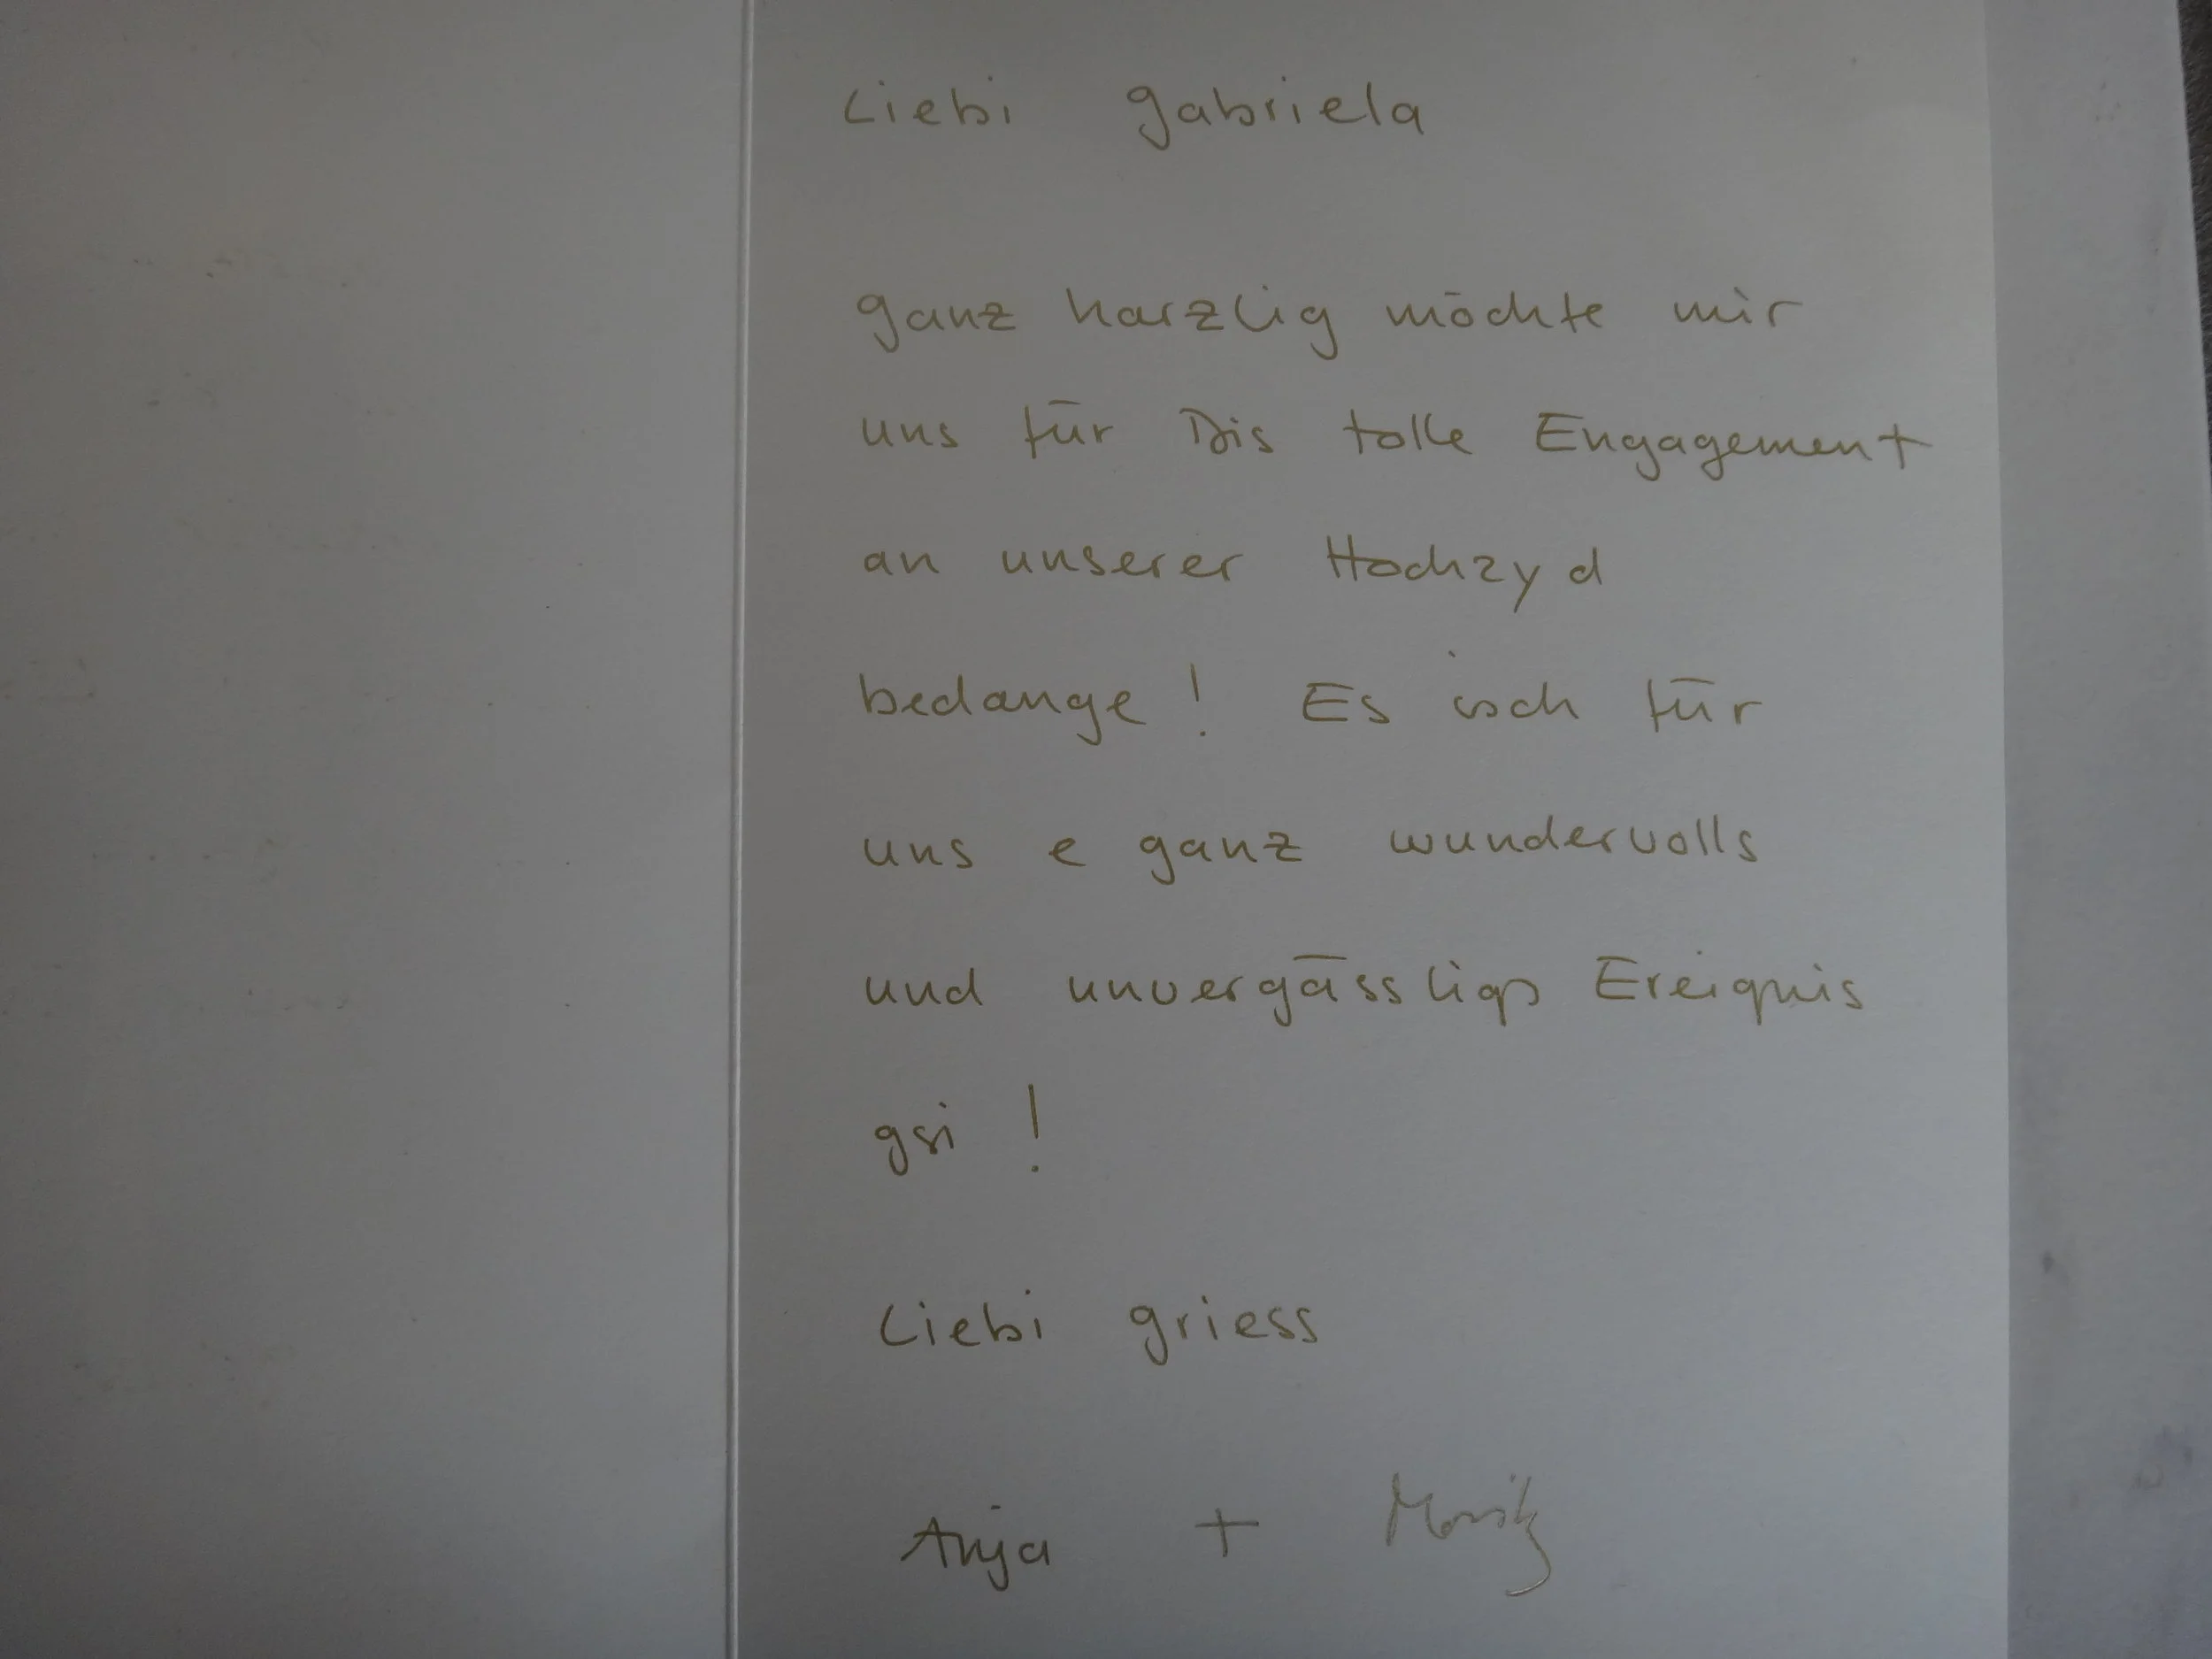 Liebi Gabriela
ganz harzlig möchte mir
uns für Dis tolle Engagement
an unserer Hochzyd
bedange! Es isch für
uns e ganz wundervolls
und unvergässligs Ereignis
gsi!
Liebi Griess
Anja + Moritz